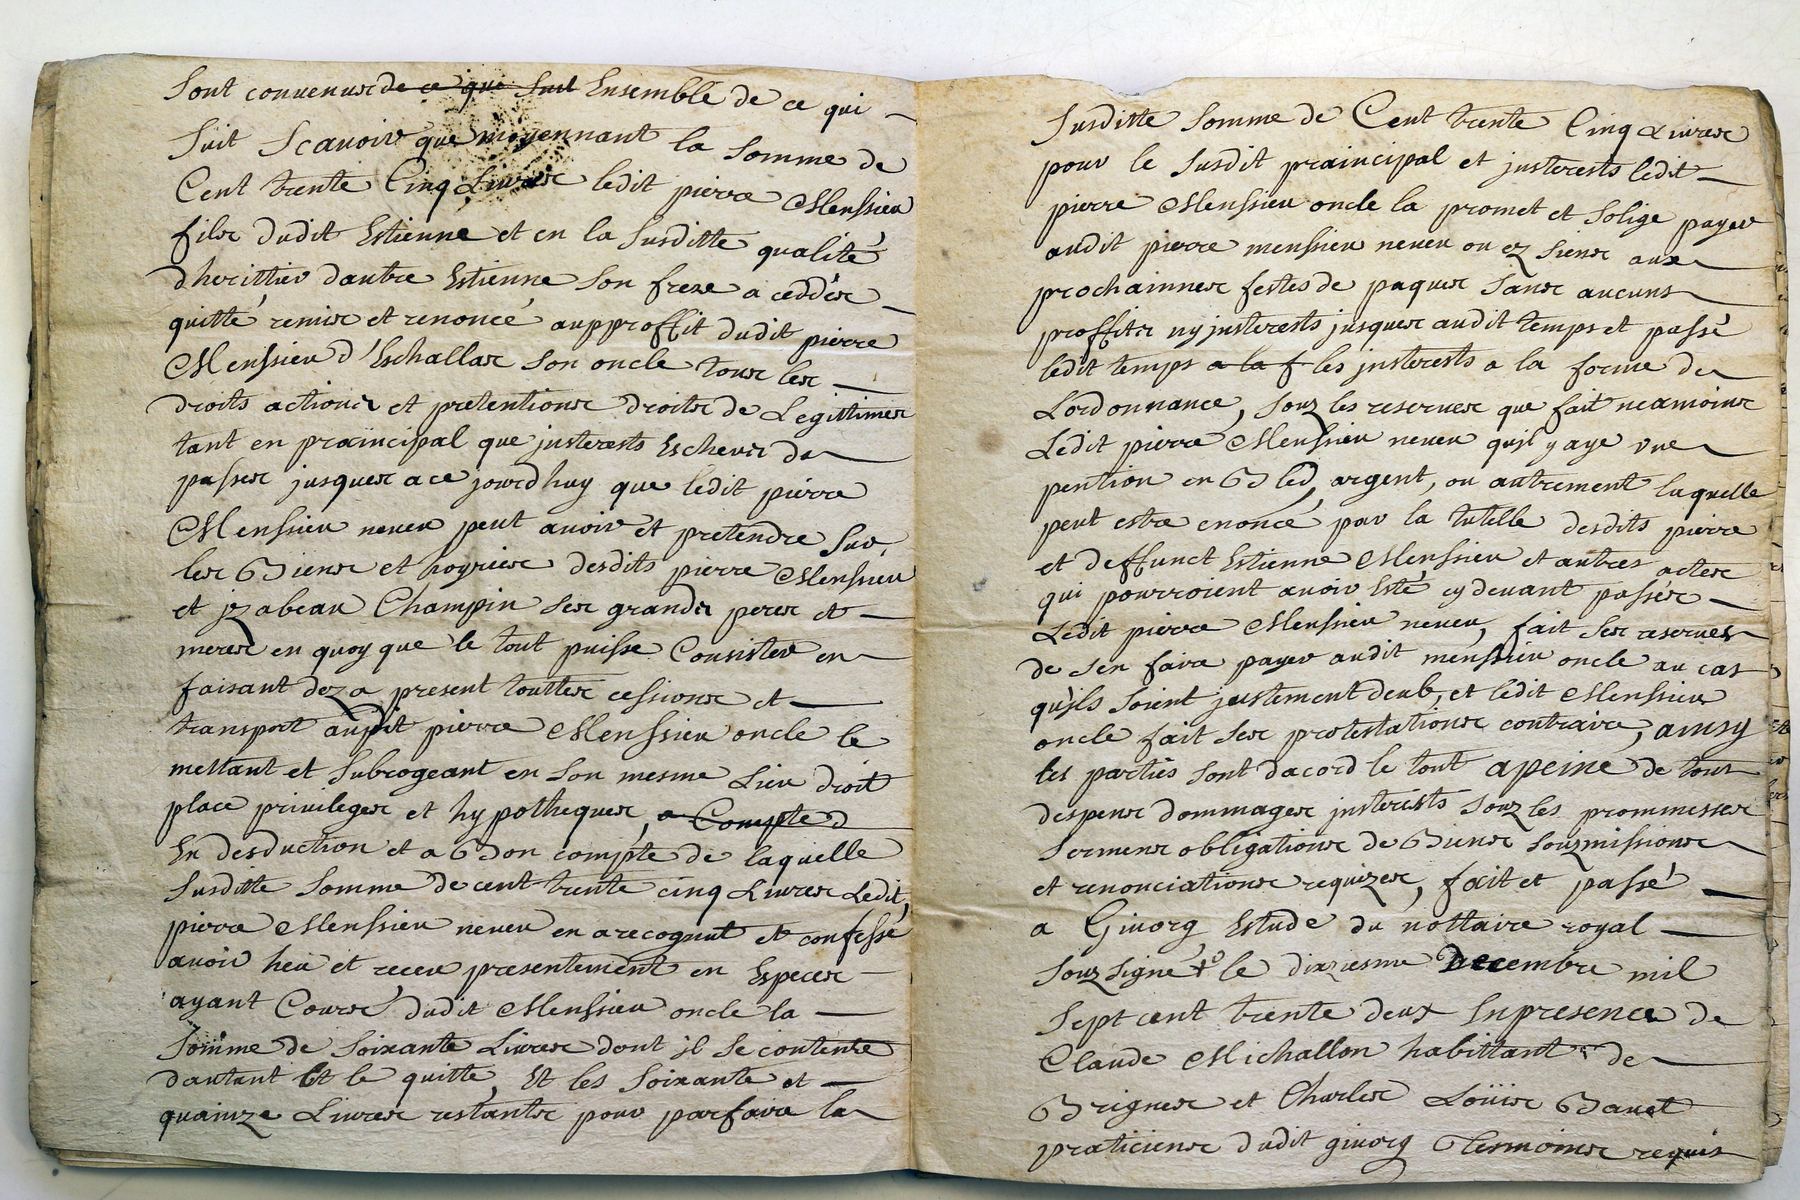 Sont convenus de ce que suit Ensemble de ce qui
Suit Scavoir que moyennant la Somme de
Cent trente Cinq Livres ledit pierre Menssieu
fils dudit Estienne et en la Susditte qualité
dherittier dautre Estienne Son frere a ceddés
quitté remis et renoncé aupproffit dudit pierre
Menssieu d'Eschallas Son oncle tous les
droits actions et pretentions droits de Legittimes
tant en praincipal que justerests Escheus de
passes jusques a ce jourdhuy que ledit pierre
Menssieu neveu peut avoir et pretendre Sur
les Biens et hoyries desdits pierre Menssieu
et jzabeau Champin Ses grands peres et
meres en quoy que le tout puisse Consister en
faisant dez a present touttes cessions et
transport audit pierre Menssieu oncle le
mettant et Subrogeant en Son mesme Lieu droit
place privileges et hypotheques, a Compte d
En desduction et a Bon compte de laquelle
Susditte Somme de cent trente cinq Livres Ledit
pierre Menssieu neveu en a recognut et confessé
avoir heu et receu presentement en Especes
ayant Cours dudit Menssieu oncle la
Somme de Soixante Livres dont jl Se contente
dautant Et le quitte, Et les Soixante et
quainze Livres restants pour parfaire la
Susditte Somme de Cent trente Cinq Livres
pour le Susdit praincipal et justerests ledit
pierre Menssieu oncle la promet et Solige payer
audit pierre menssieu neveu ou ez Siens aux
prochainnes festes de paques Sans aucuns
proffits ny justerests jusques audit temps et passé
ledit temps a la f les justerests a la forme de
Lordonnance, Souz les reserves que fait neamoins
Ledit pierre Menssieu neveu qusjl y aye une
pention en Bled, argent, ou autrement laquelle
peut estre enoncé par la tutelle desdits pierre
et deffunct Estienne Menssieu et autres actes
qui pourroient avoir Esté cy devant passés
Ledit pierre Menssieu neveu, fait Ses reserves
de Sen faire payer audit menssieu oncle au cas
qujls Soient justement deub, et ledit Menssieu
oncle fait Ses protestations contraire, ainsy
les parties Sont dacord le tout a peine de tous
despens dommages justerests Souz les prommesses
Sermens obligations de Biens Souzmissions
et renonciations requizes, fait et passé
a Givorg Estude du nottaire royal
Souz Signé le dixiesme Decembre mil
Sept cent trente deux En presence de
Claude Michallon habittant de
Brignes et Charles Loüis Bauet
praticiens dudit givorg Tesmoins requis